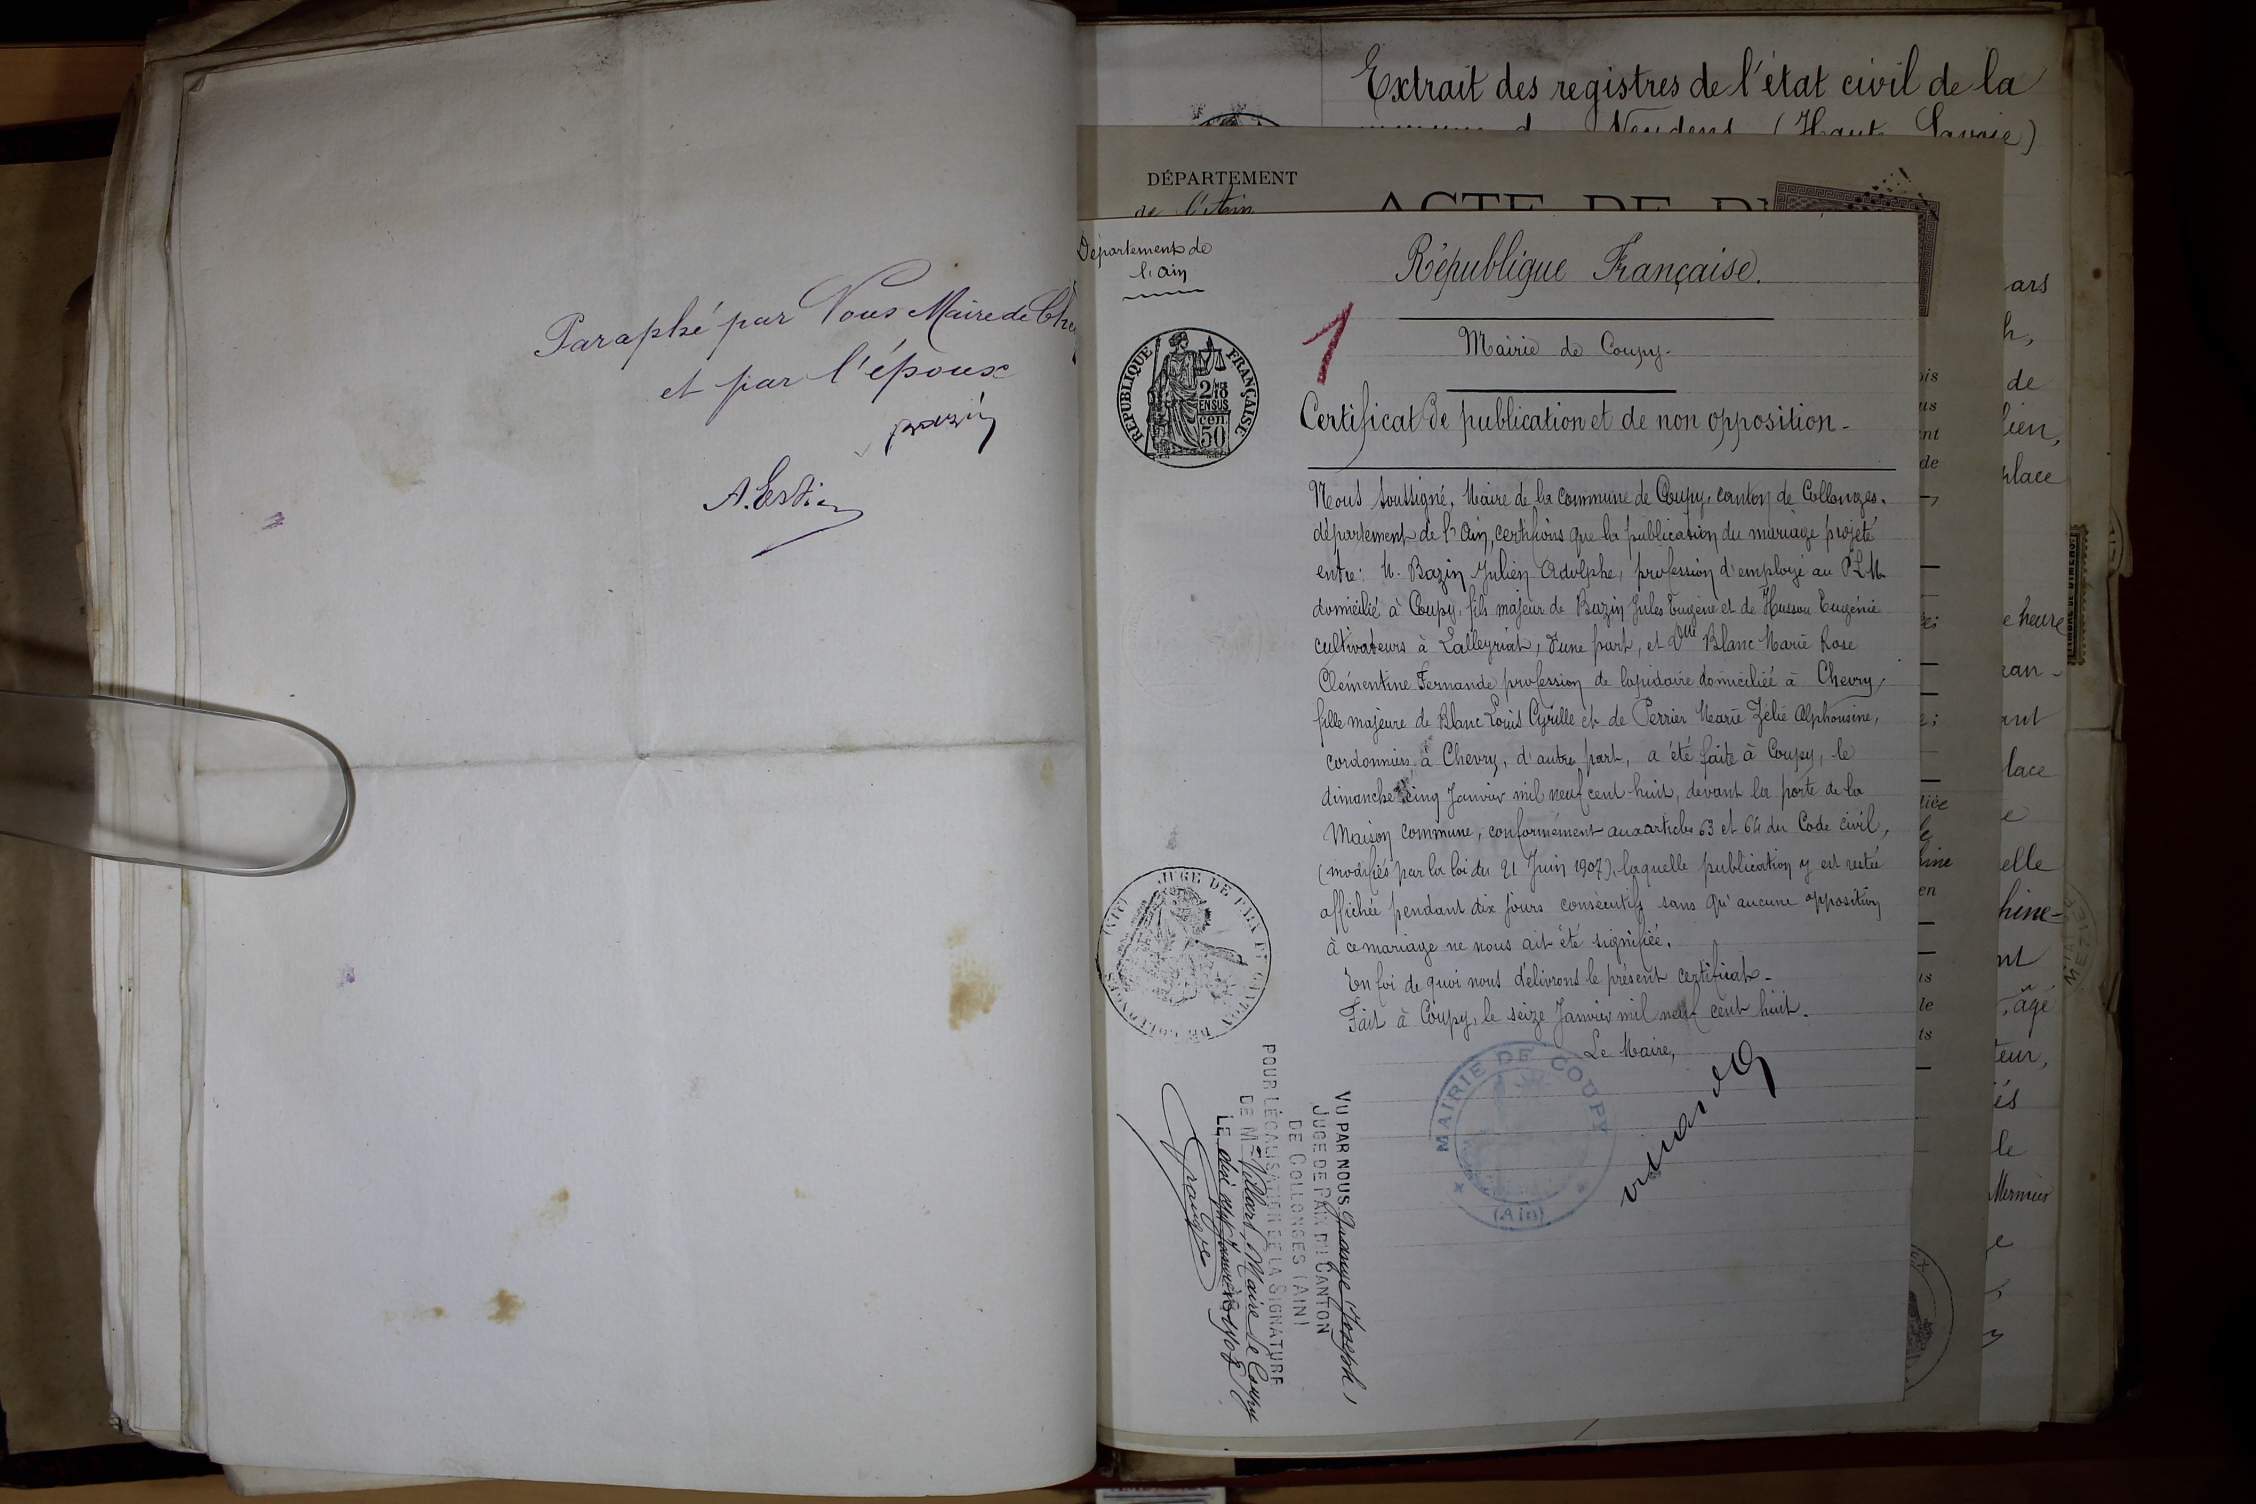 Paraphé par Nous Maire de Che
et par l'époux
Bazin
A. Estier
Extrait des registres de l'état civil de la
(Haute Savoie)
DÉPARTEMENT
de l'Ain
ACTE DE
Département de
l'Ain
République Française.
1
Mairie de Coupy.
RÉPUBLIQUE FRANÇAISE
2/10
EN SUS
50 cen
Certificat de publication et de non opposition.
Nous soussigné, Maire de la commune de Coupy, canton de Collonges.
département de l'Ain, certifions que la publication du mariage projeté
entre: M. Bazin Julien Adolphe, profession d'employé au P.L.M.
domicilié à Coupy, fils majeur de Bazin Jules Eugène et de Husson Eugénie
cultivateurs à Lalleyriat, d'une part, et Dlle Blanc Marie Rose
Clémentine Fernande profession de lapidaire domiciliée à Chevry,
fille majeure de Blanc Louis Cyrille et de Perrier Marie Zélie Alphonsine,
cordonniers, à Chevry, d'autre part, a été faite à Coupy, le
dimanche cinq Janvier mil neuf cent huit, devant la porte de la
Maison commune, conformément aux articles 63 et 64 du Code civil,
(modifiés par la loi du 21 Juin 1907), laquelle publication y est restée
affichée pendant dix jours consécutifs sans qu'aucune opposition
à ce mariage ne nous ait été signifiée.
En foi de quoi nous délivrons le présent certificat.
Fait à Coupy, le seize Janvier mil neuf cent huit.
Le Maire,
MAIRIE DE COUPY
(Ain)
JUGE DE PAIX DU CANTON DE COLLONGES (AIN)
VU PAR NOUS, Grange Joseph,
JUGE DE PAIX DU CANTON
DE COLLONGES (AIN)
POUR LÉGALISATION DE LA SIGNATURE
DE Mr Villard, Maire de Coupy
LE dix sept Janvier 1908
Grange
ars
h,
de
lien,
place
e heure
ean-
ant
lace
e
elle
hine-
nt
âgé
teur,
és
le
Mermier